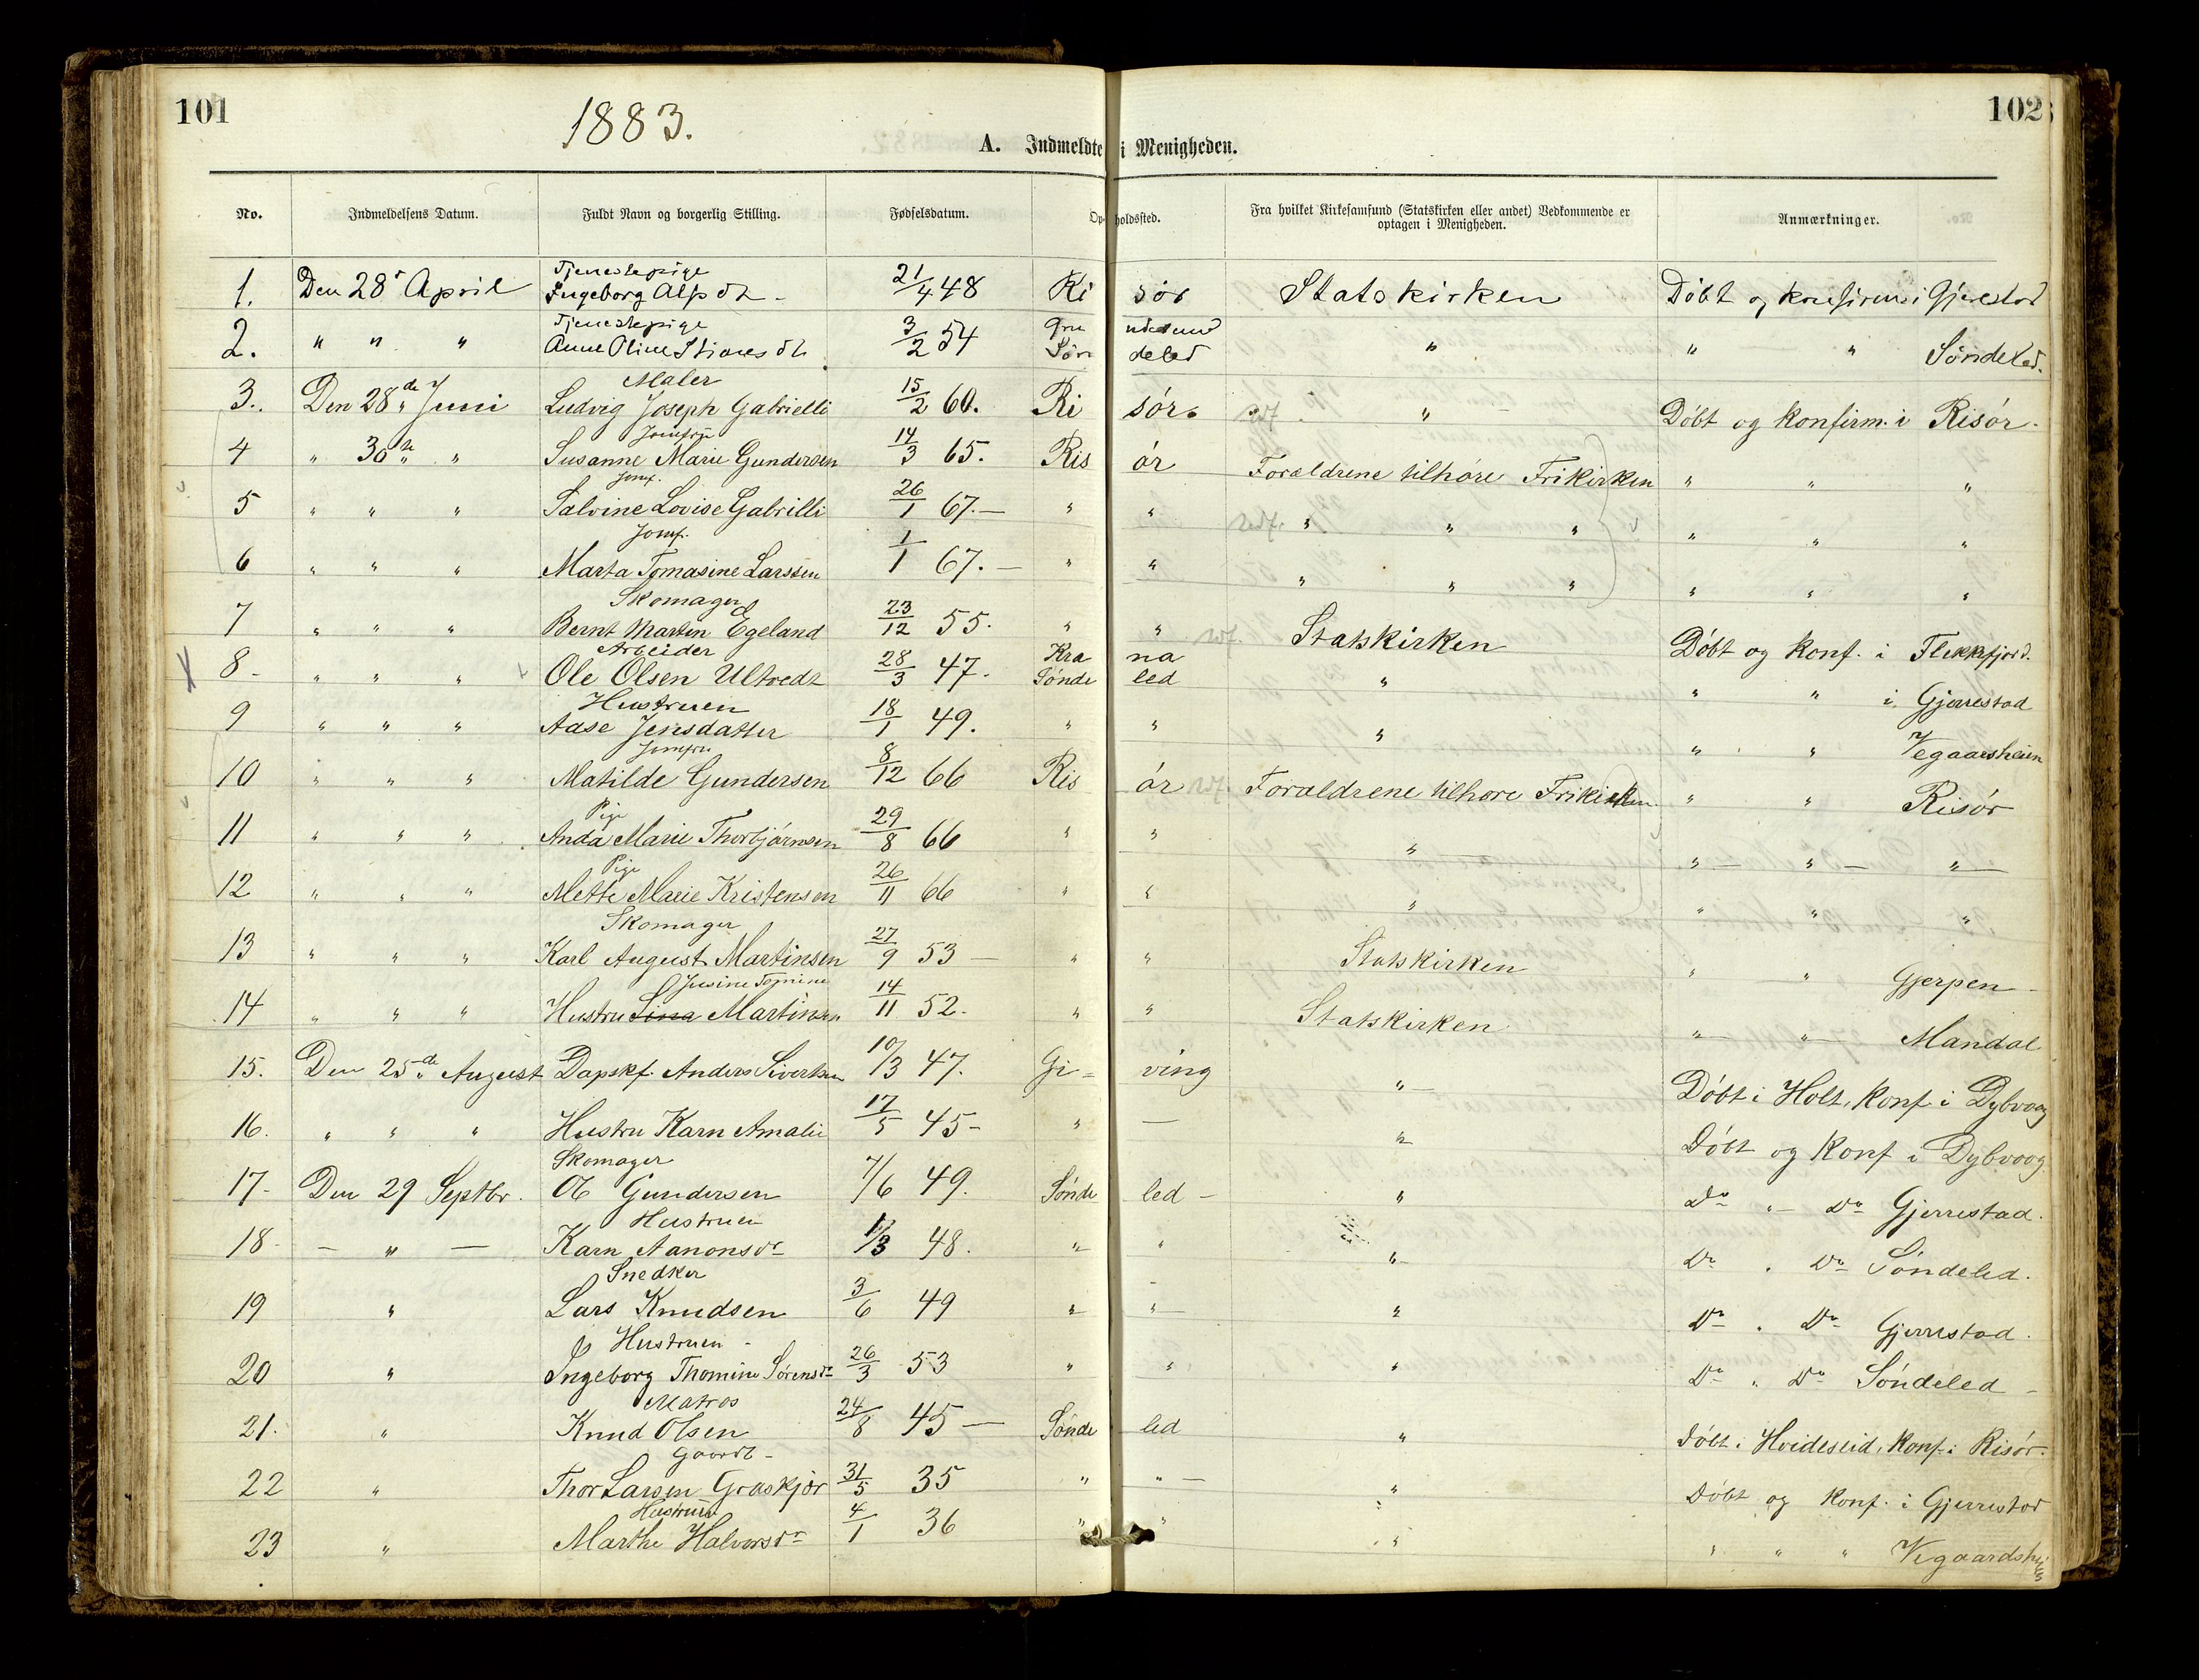 101
1883.
102
A. Indmeldte i Menigheden.
No. Indmeldelsens Datum. Fuldt Navn og borgerlig Stilling. Fødselsdatum. Opholdssted. Fra hvilket Kirkesamfund (Statskirken eller andet) Vedkommende er optagen i Menigheden. Anmærkninger.
Tjenestepige
1. Den 28 April Ingeborg Alfsdt - 21/4 48 Risør Statskirken Døbt og konfirm i Gjerestad
Tjenestepige
2. " " " Anne Oline 3/2 54 Søndeled " " " Søndeled.
Maler
3. Den 28de Juni Ludvig Joseph Gabrielli 15/2 60. Risør. " Døbt og konfirm. i Risør.
Jomfru
4 " 30te " Susanne Marie Gundersen 14/3 65. Risør Forældrene tilhøre Frikirken " " "
Jomf.
5 " " " Salvine Lovise Gabrilli 26/1 67. — " " " " " " " "
Jomf.
6 " " " Marta Tomasine Larssen 1/1 67. — " " " " " " " "
Skomager
7 " " " Bernt Martin Egeland 23/12 55. " " Statskirken Døbt og konf. i Flekkefjord.
Arbeider
8 - " " " Ole Olsen Ultvedt 28/3 47. Krana Søndeled " " " i Gjerrestad
Hustruen
9 " " " Aase Jensdatter 18/1 49. " " " " " Vegaarsheien
Jomfru
10 " " " Matilde Gundersen 8/12 66 Risør Forældrene tilhøre Frikirken " " Risør
Pige
11 " " " Anda Marie Thorbjørnsen 29/8 66 " " " " — " — "
Pige
12 " " " Mette Marie Kristensen 26/11 66 " " " " " "
Skomager
13 " " " Karl August Martinsen 27/9 53 — " " Statskirken " " Gjerpen -
14 " " " Hustru Martinsen 14/11 52. " " Statskirken " " Mandal
15. Den 25de August Anders Sivertsen 10/3 47. Gi-ving " Døbt i Holt, konf. i Dybvaag
16. " " " Hustru Karn Amalie 17/5 45- " — " Døbt og konf i Dybvaag
Skomager
17- Den 29 Septbr. Ole Gundersen 7/6 49. Søndeled - " Do " Do Gjerrestad.
Hustruen
18- — " — Karn Aanonsdr /3 48. " " " Do " Do Søndeled.
Snedker
19 " Lars Knudsen 3/6 49 " " " Do " Do Gjerrestad.
Hustruen -
20 " Ingeborg Thomine Sørensdr 26/3 53 " " " Do " Do Søndeled -
Matros
21. " Knud Olsen 24/8 45 — Søndeled " Døbt i Hvideseid, konf. i Risør.
Gaardb -
22 " Thor Larsen Graskjør 31/5 35 " " — " Døbt og konf. i Gjerrestad
Hustruen
23 " Marthe Halvorsdr 4/1 36 " " " " " " Vegaardsheien